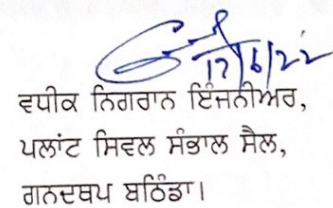 17/6/22
ਵਧੀਕ ਨਿਗਰਾਨ ਇੰਜਨੀਅਰ,
ਪਲਾਂਟ ਸਿਵਲ ਸੰਭਾਲ ਸੈਲ,
ਗਨਦਥਪ ਬਠਿੰਡਾ।